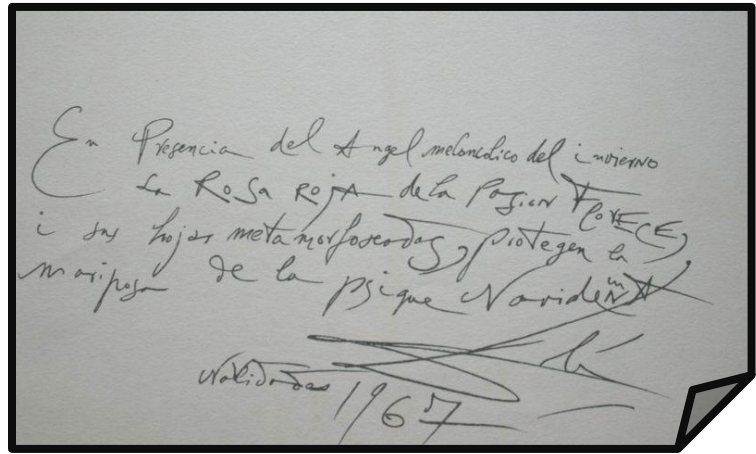 En Presencia del Angel melancolico del invierno
La ROSA ROJA de la Pasion FLORECE,
i sus hojas metamorfoseadas, protegen la
mariposa de la psique NavideñA
Navidades 1967